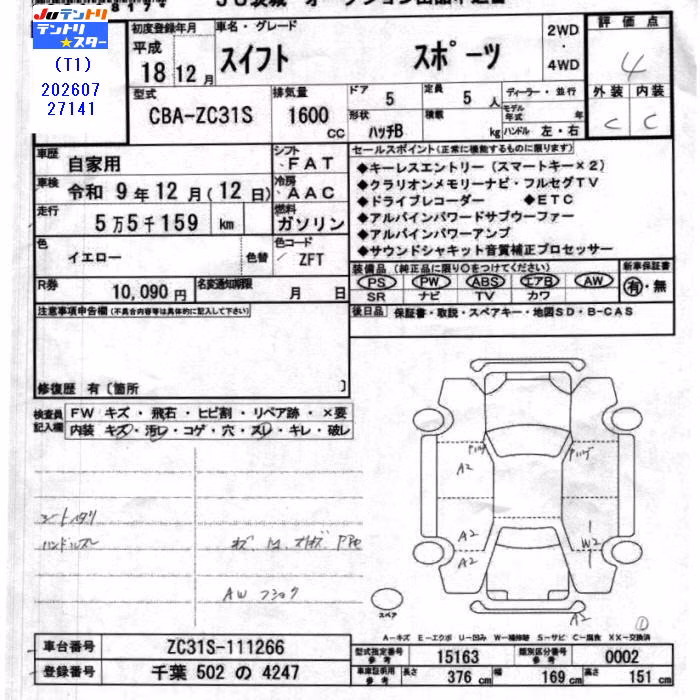 Juテントリ
テントリ★スター
(T1)
202607
27141
初度登録年月
平成
18 12 月
車名・グレード
スイフト スポーツ
2WD
・
4WD
評価点
4
型式
CBA-ZC31S
排気量
1600
CC
ドア
5
定員
5 人
形状
ハッチB
積載
kg
ディーラー・並行
モデル年式 年
ハンドル 左・右
外装 内装
C C
車歴
自家用
シフト
FAT
車検
令和 9 年 12 月 (12 日)
冷房
AAC
走行
5万5千159 km
燃料
ガソリン
色
イエロー
色替
色コード
ZFT
R券
10,090 円
名変通知期限
月 日
セールスポイント(正常に機能するものに限ります)
◆キーレスエントリー(スマートキー×2)
◆クラリオンメモリーナビ・フルセグTV
◆ドライブレコーダー ◆ETC
◆アルパインパワードサブウーファー
◆アルパインパワーアンプ
◆サウンドシャキット音質補正プロセッサー
装備品(純正品に限り○をつけてください)
新車保証書
PS PW ABS エアB AW
SR ナビ TV カワ
有・無
後日品 保証書・取説・スペアキー・地図SD・B-CAS
注意事項申告欄(不具合内容等は具体的に記入して下さい)
修復歴 有〔箇所 〕
検査員記入欄
FW キズ・飛石・ヒビ割・リペア跡・×要
内装 キズ・汚レ・コゲ・穴・スレ・キレ・破レ
シートヘタリ
ハンドルスレ
AW フショク
A2
A2
A2
W2
A2
A2
スペア
①
A-キズ E-エクボ U-凹み W-補修跡 S-サビ C-腐食 XX-交換済
車台番号 ZC31S-111266
登録番号 千葉 502 の 4247
型式指定番号
参考
15163
類別区分番号
参考
0002
車庫証明用
参考
長さ 376 cm 幅 169 cm 高さ 151 cm